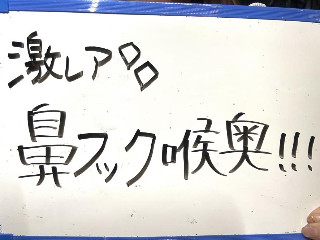 激レア◇◇
鼻フック喉奥!!!